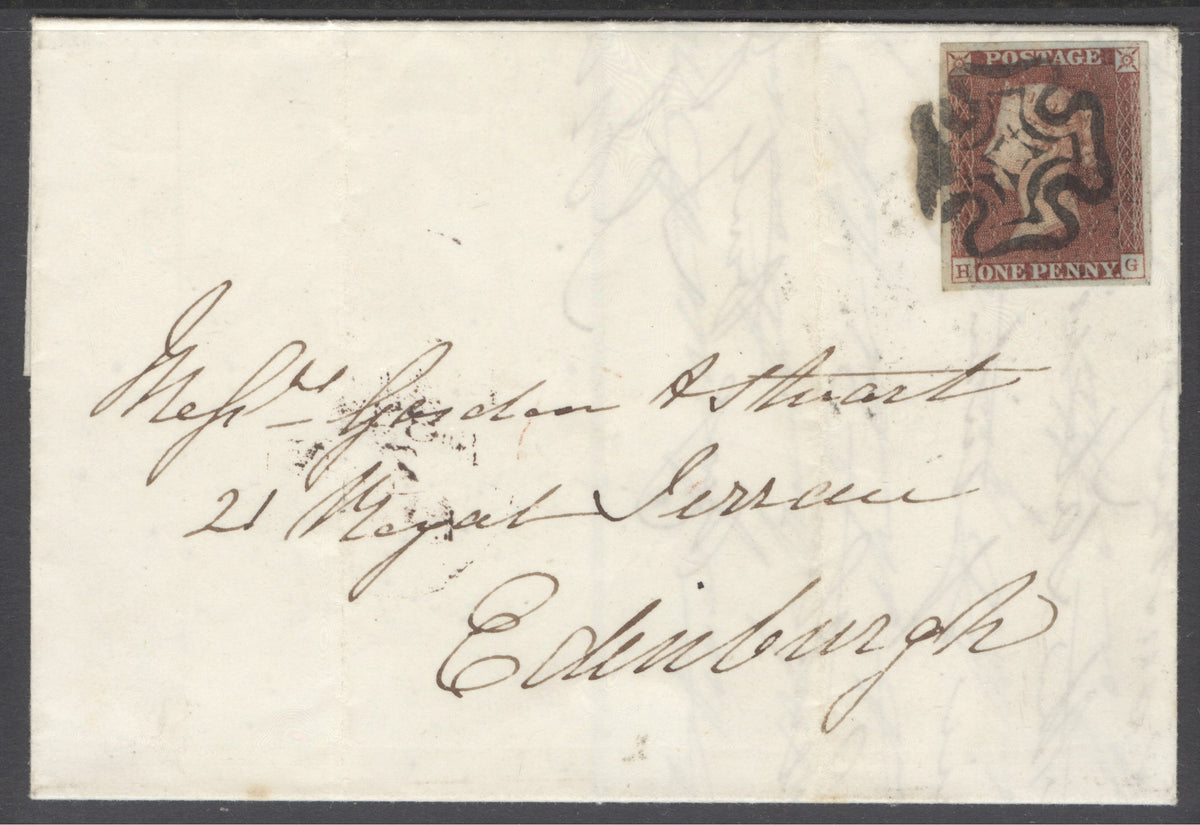 POSTAGE
H ONE PENNY. G
Messrs Gordon & Stuart
21 Royal Terrace
Edinburgh